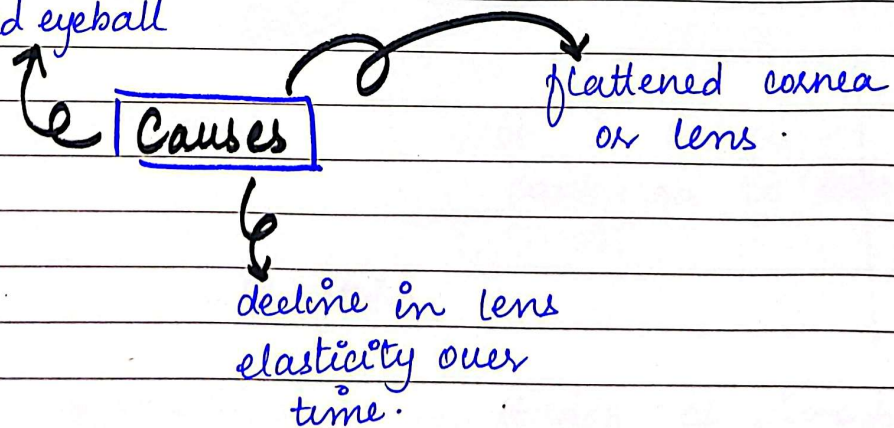 d eyeball
flattened cornea
or lens.
Causes
decline in lens
elasticity over
time.